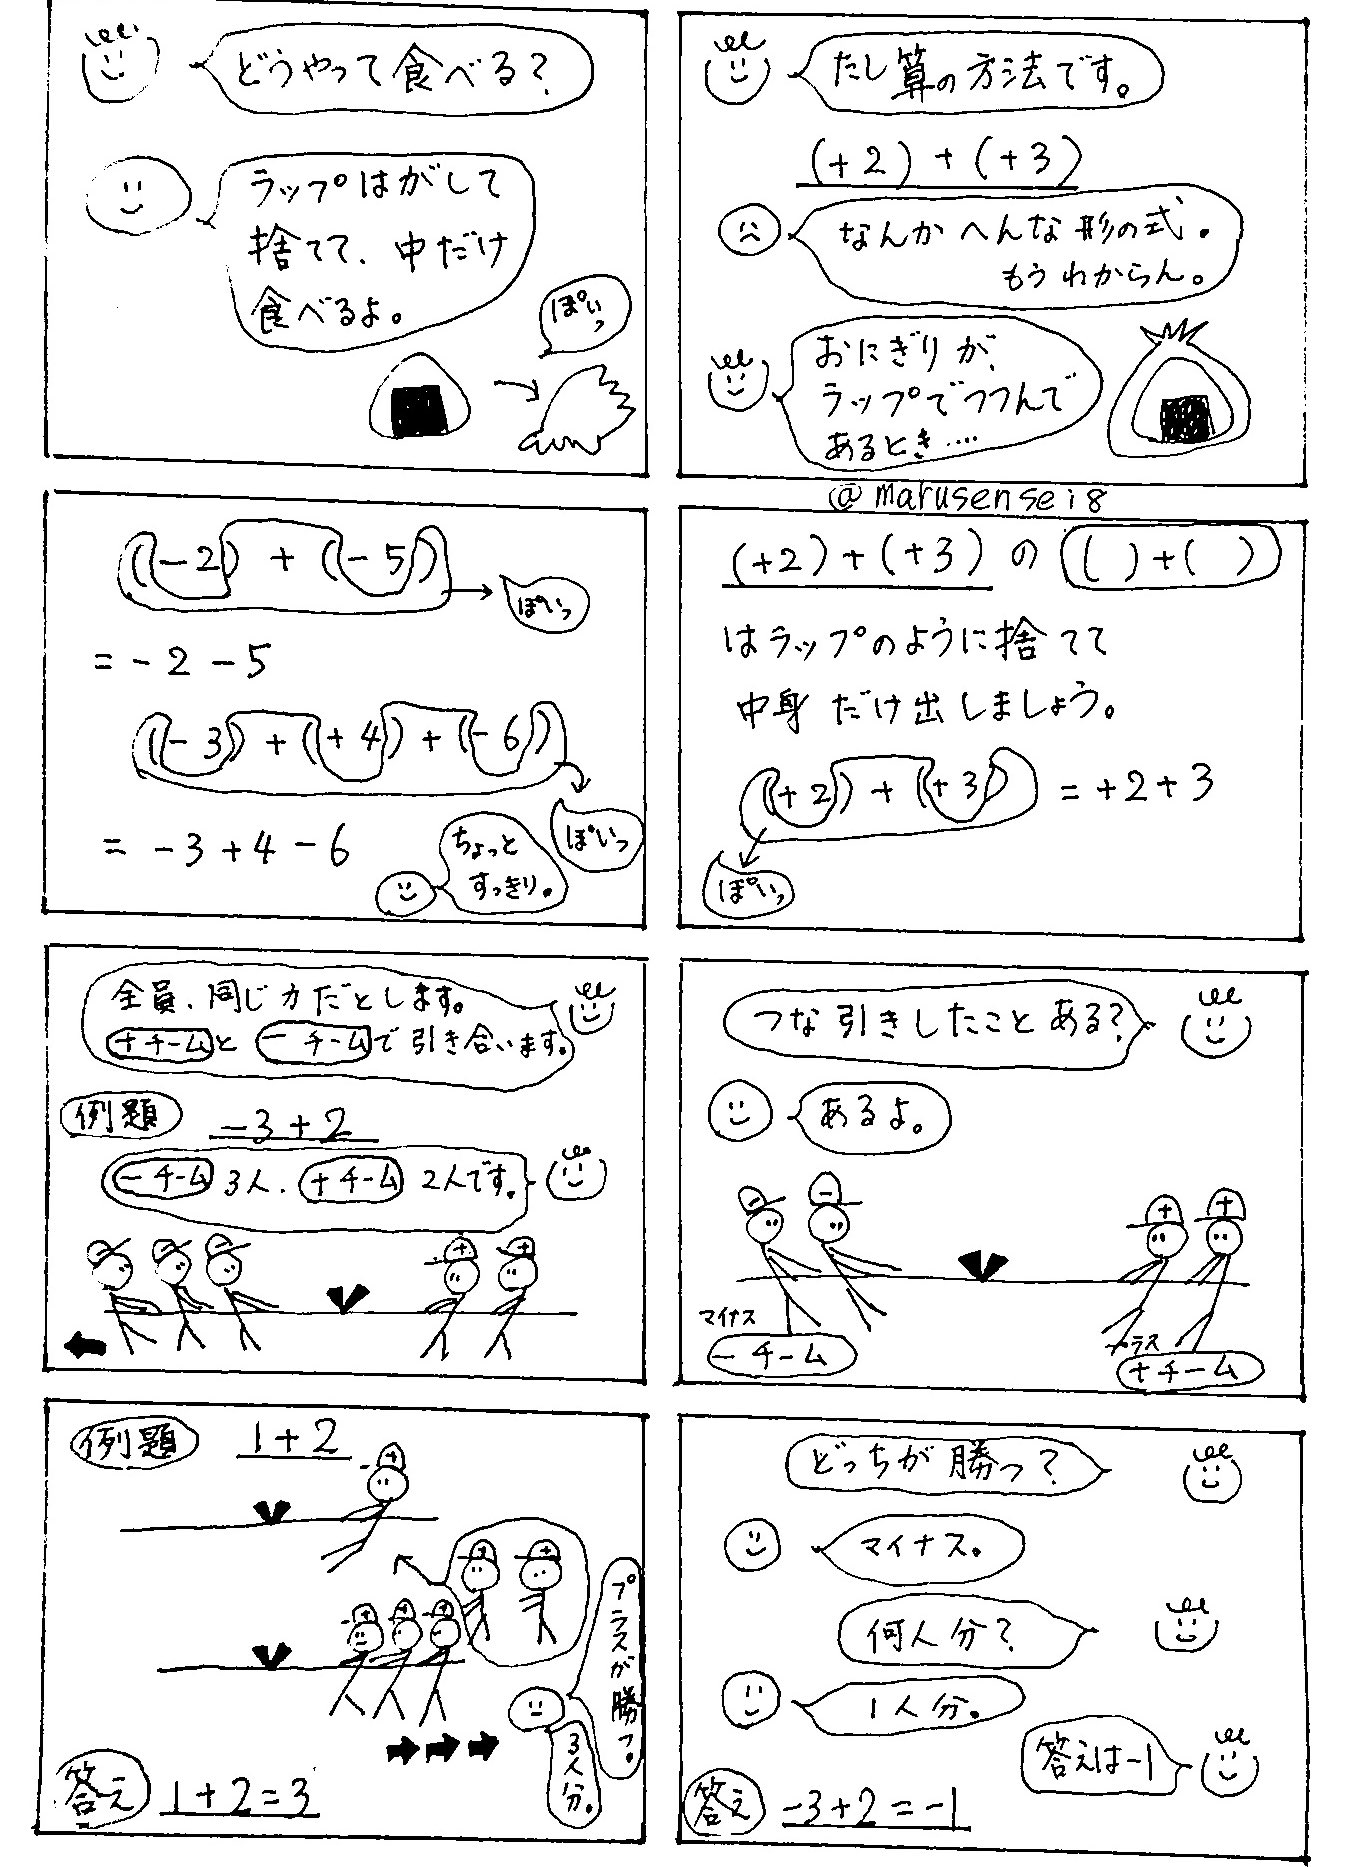 たし算の方法です。
(+2)+(+3)
なんかへんな形の式。
もうわからん。
おにぎりが、
ラップでつつんで
あるとき‥‥
どうやって食べる?
ラップはがして
捨てて、中だけ
食べるよ。
ぽいっ
@marusensei8
(+2)+(+3)の( )+( )
はラップのように捨てて
中身だけ出しましょう。
(+2)+(+3)=+2+3
ぽいっ
(-2)+(-5)
ぽいっ
=-2-5
(-3)+(+4)+(-6)
ぽいっ
=-3+4-6
ちょっと
すっきり。
つな引きしたことある?
あるよ。
マイナス
-チーム
プラス
+チーム
全員、同じ力だとします。
+チームと-チームで引き合います。
例題 -3+2
-チーム3人、+チーム2人です。
どっちが勝つ?
マイナス。
何人分?
1人分。
答えは-1
答え -3+2=-1
例題 1+2
プラスが勝つ。
3人分。
答え 1+2=3